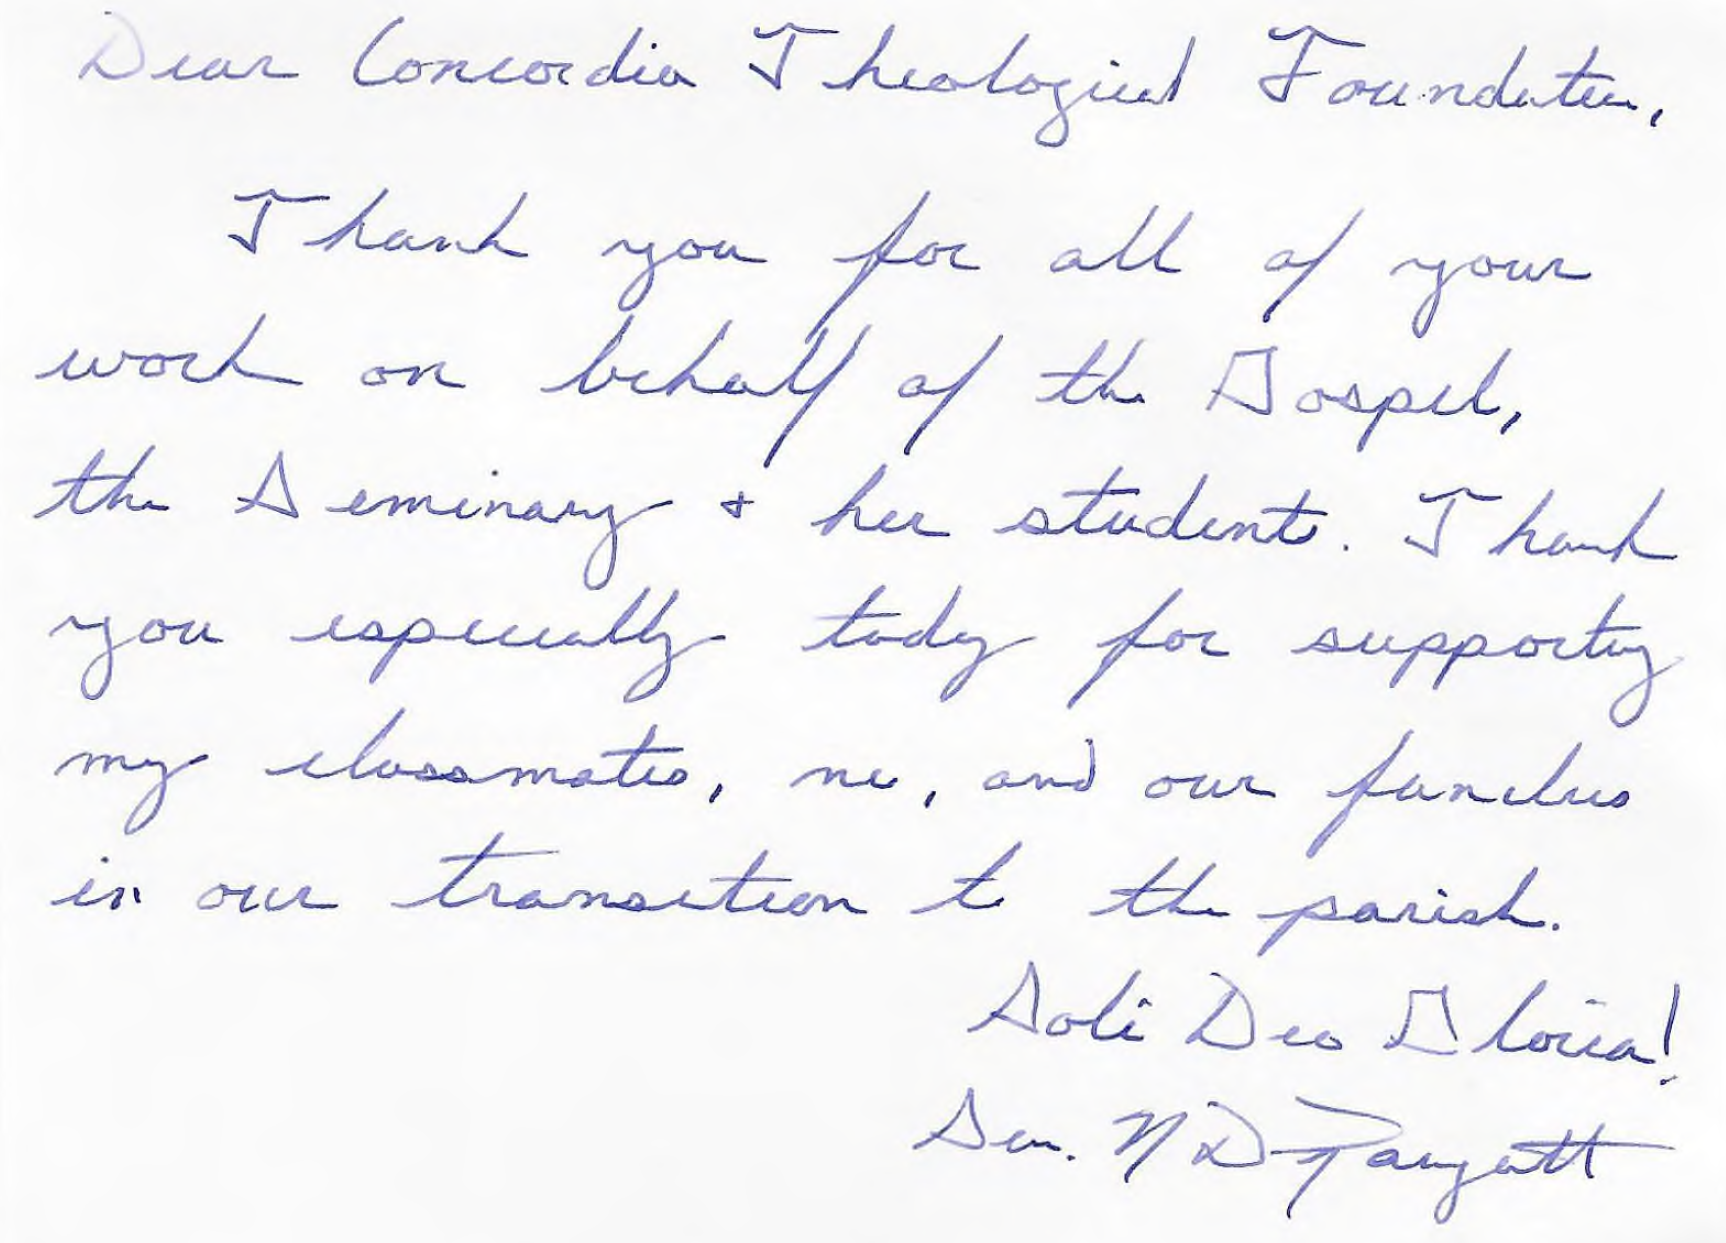 Dear Concordia Theological Foundation,
Thank you for all of your
work on behalf of the Gospel,
the Seminary + her students. Thank
you especially today for supporting
my classmates, me, and our families
in our transition to the parish.
Soli Deo Gloria!
Sem. N D